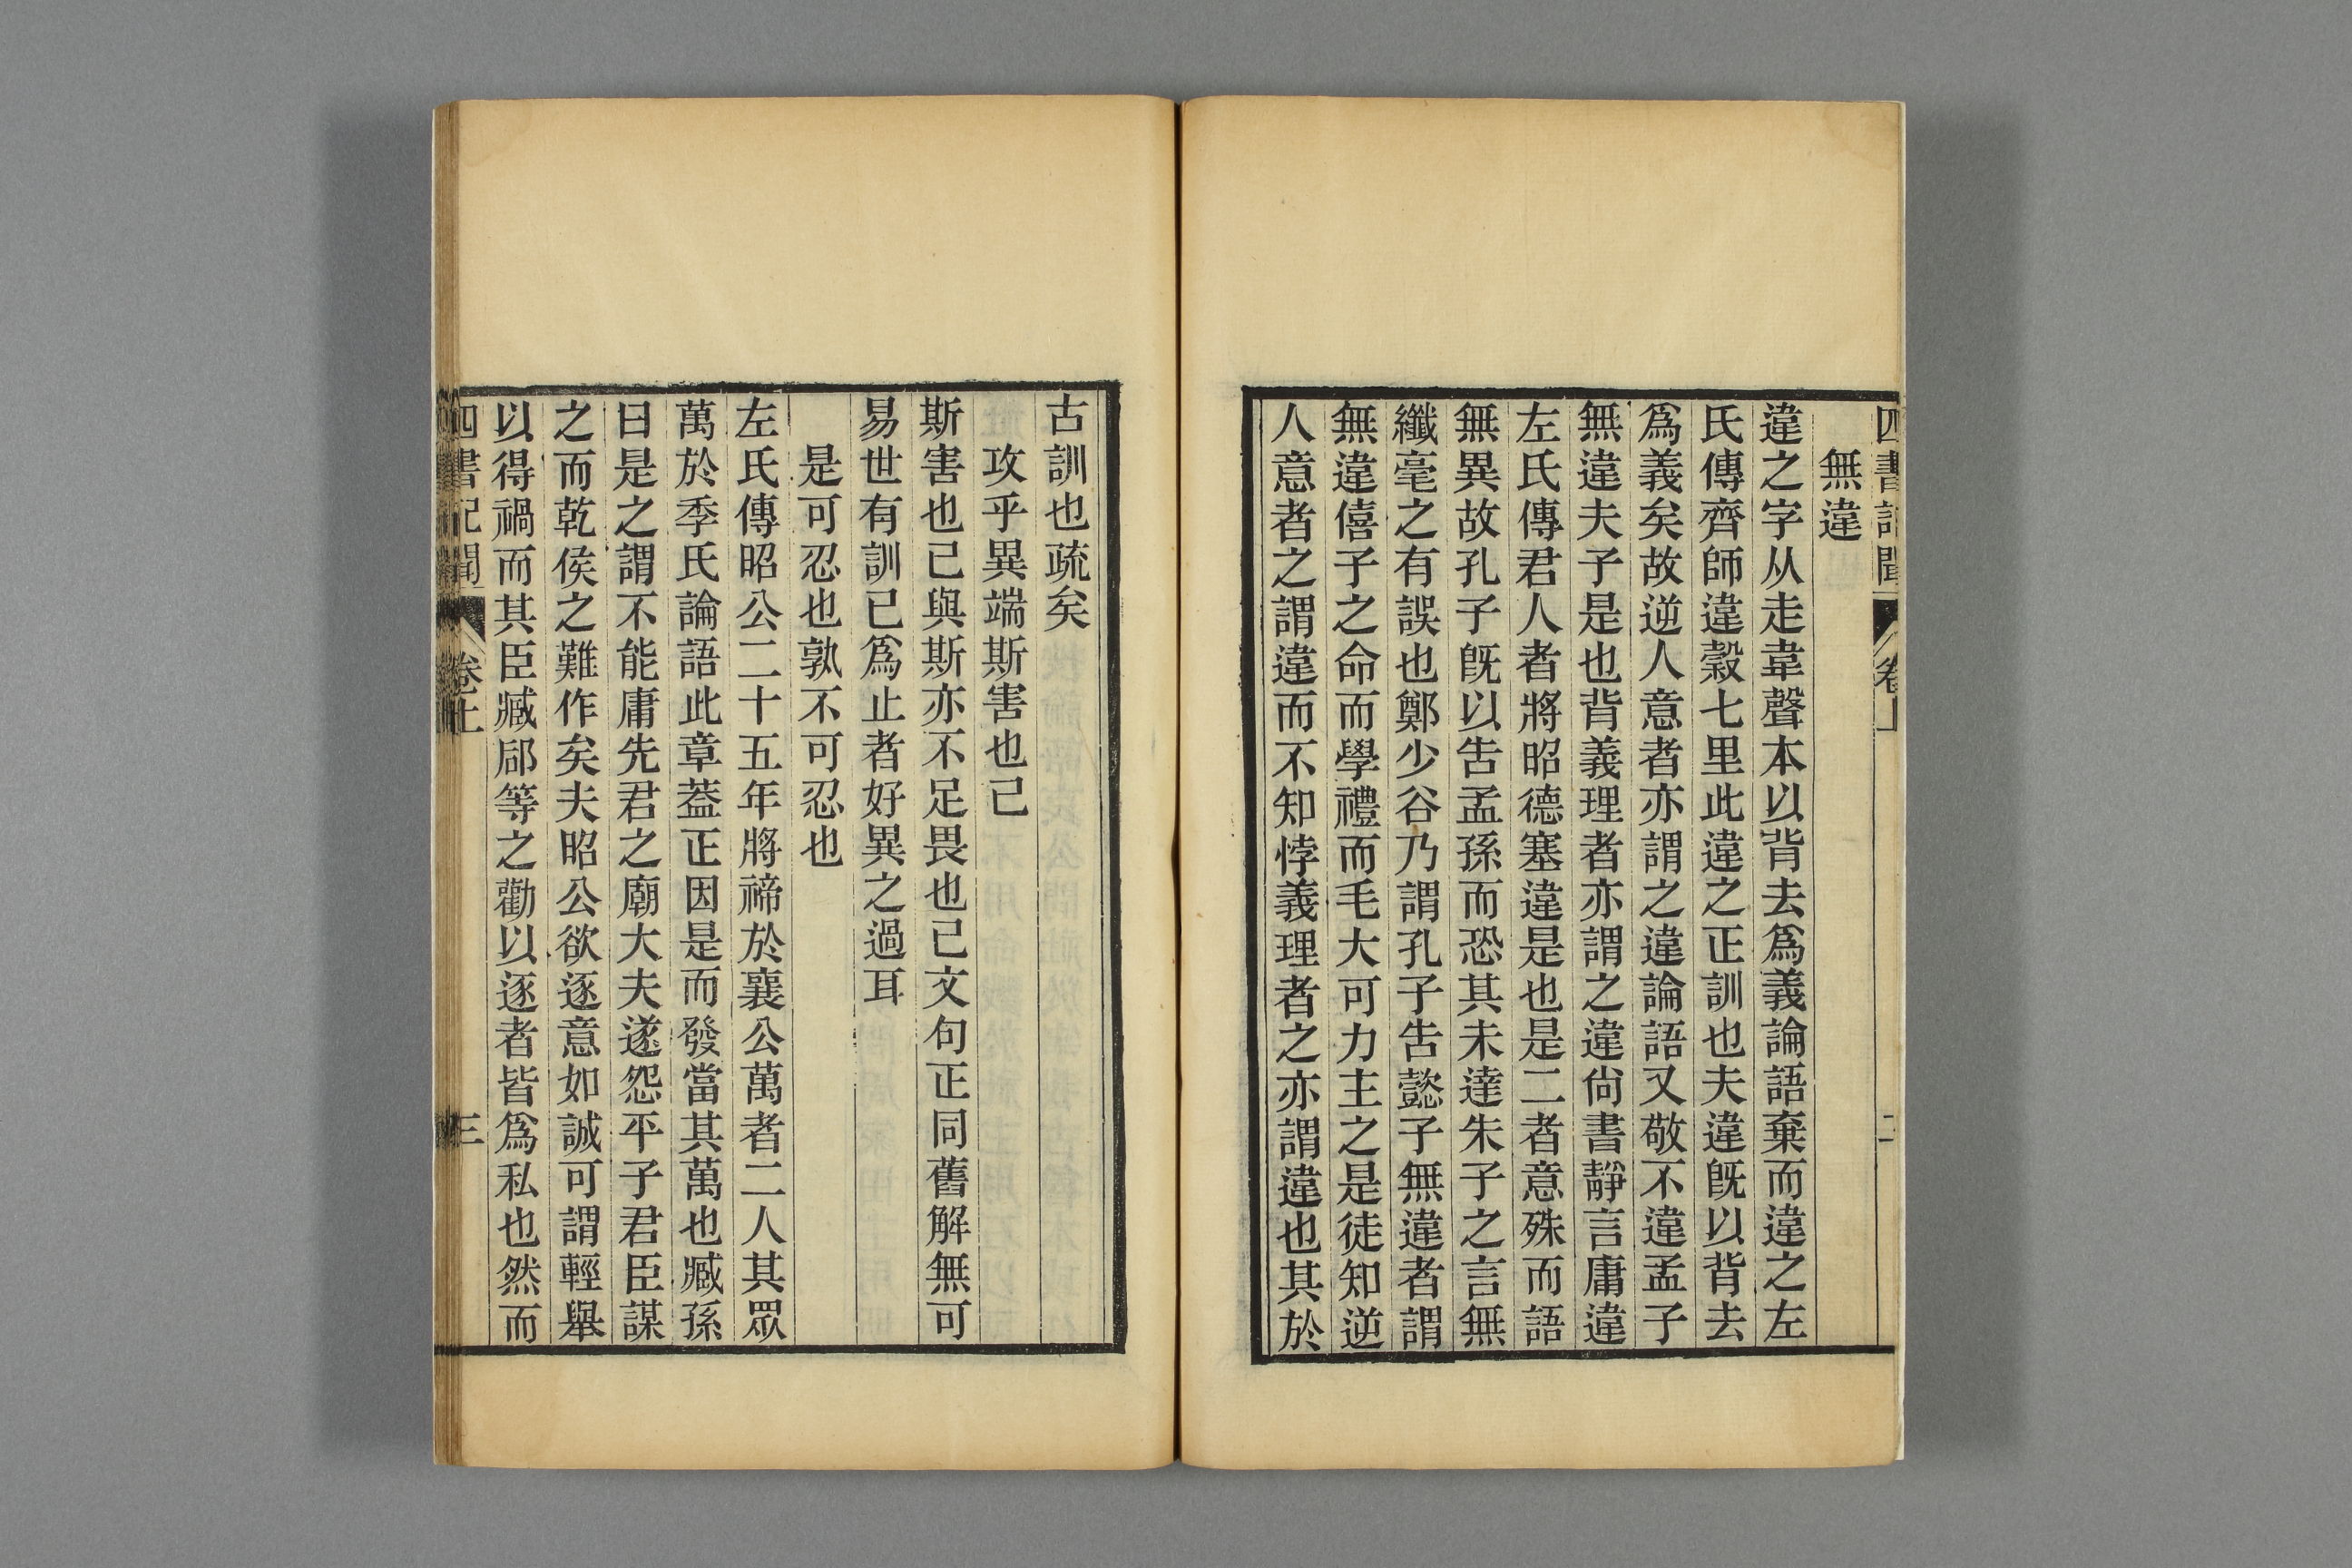 四書記聞 卷上 二
無違
違之字从走韋聲本以背去爲義論語棄而違之左
氏傳齊師違穀七里此違之正訓也夫違旣以背去
爲義矣故逆人意者亦謂之違論語又敬不違孟子
無違夫子是也背義理者亦謂之違尙書靜言庸違
左氏傳君人者將昭德塞違是也是二者意殊而語
無異故孔子旣以吿孟孫而恐其未達朱子之言無
纖毫之有誤也鄭少谷乃謂孔子吿懿子無違者謂
無違僖子之命而學禮而毛大可力主之是徒知逆
人意者之謂違而不知悖義理者之亦謂違也其於
古訓也疏矣
攻乎異端斯害也己
斯害也己與斯亦不足畏也己文句正同舊解無可
易世有訓已爲止者好異之過耳
是可忍也孰不可忍也
左氏傳昭公二十五年將禘於襄公萬者二人其眾
萬於季氏論語此章蓋正因是而發當其萬也臧孫
曰是之謂不能庸先君之廟大夫遂怨平子君臣謀
之而乾侯之難作矣夫昭公欲逐意如誠可謂輕舉
以得禍而其臣臧郈等之勸以逐者皆爲私也然而
四書記聞 卷上 三